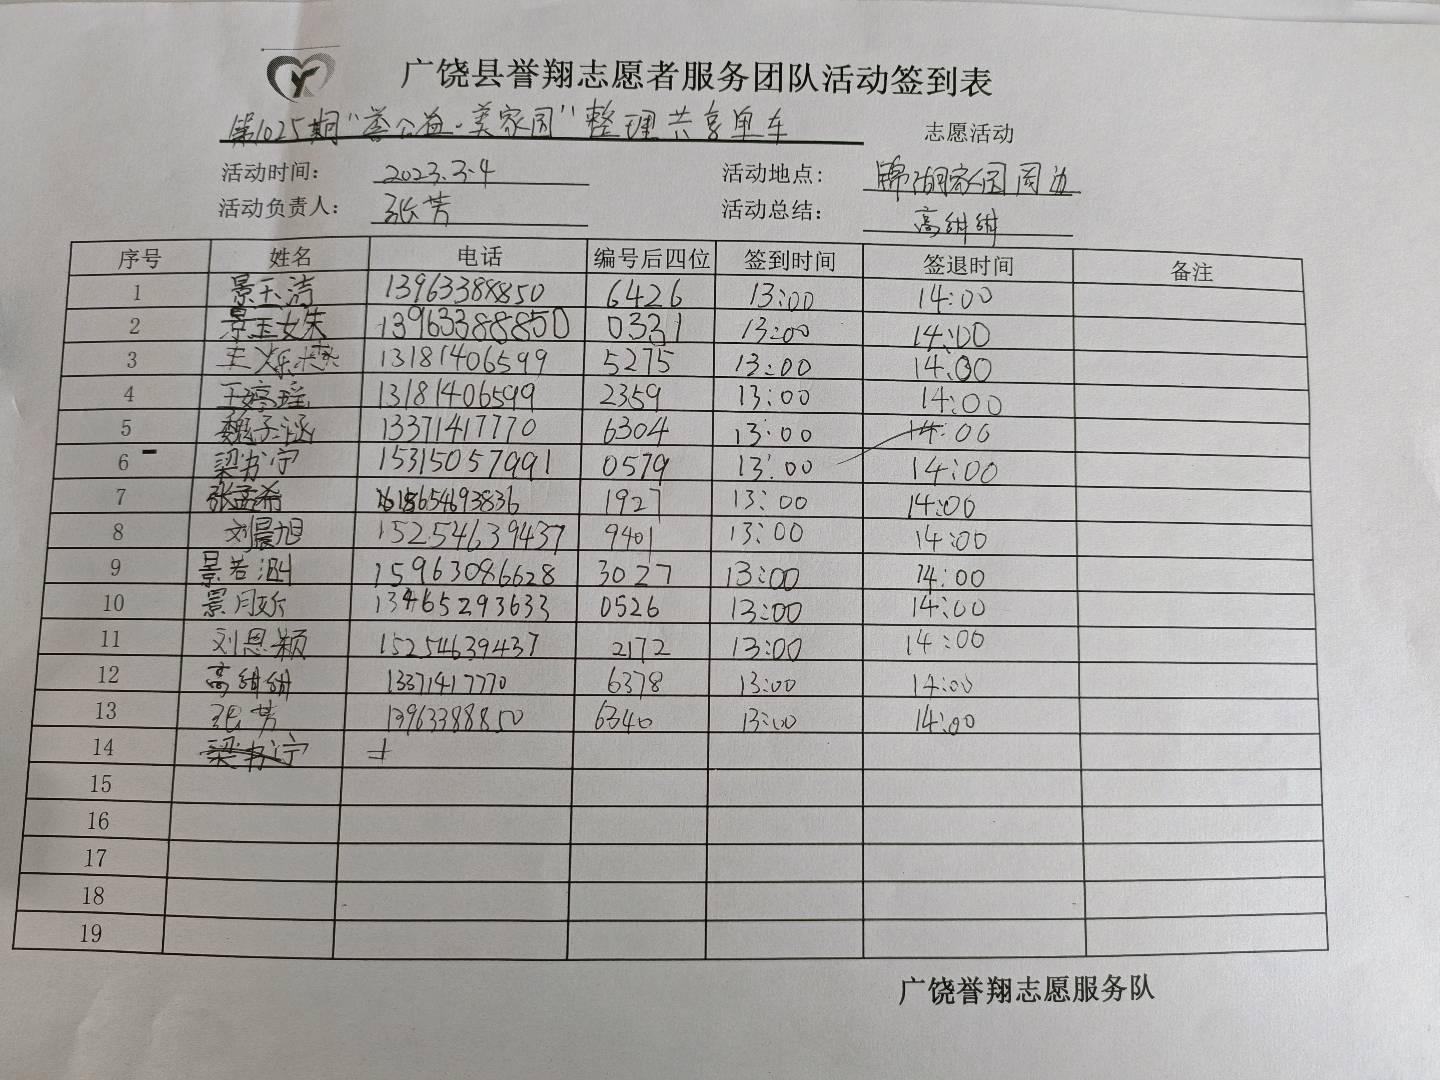 广饶县誉翔志愿者服务团队活动签到表
第1025期"誉公益·美家园"整理共享单车 志愿活动
活动时间： 2023.3.4 活动地点： 锦湖家园周边
活动负责人： 张芳 活动总结： 高甜甜
序号 姓名 电话 编号后四位 签到时间 签退时间 备注
1 景玉洁 13963388850 6426 13:00 14:00
2 景玉姝 13963388850 0331 13:00 14:00
3 13181406599 5275 13:00 14:00
4 王婷瑶 13181406599 2359 13:00 14:00
5 魏子涵 13371417770 6304 13:00 14:00
6 梁书宁 15315057991 0579 13:00 14:00
7 张孟希 1927 13:00 14:00
8 刘晨旭 15254639437 9401 13:00 14:00
9 15963086628 3027 13:00 14:00
10 13465293633 0526 13:00 14:00
11 刘恩颖 15254639437 2172 13:00 14:00
12 高甜甜 13371417770 6378 13:00 14:00
13 张芳 13963388850 6340 13:00 14:00
14 梁书宁
15
16
17
18
19
广饶誉翔志愿服务队